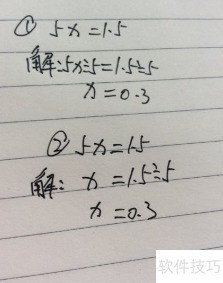 ① 5x=1.5
解:5x÷5=1.5÷5
x=0.3
② 5x=1.5
解: x=1.5÷5
x=0.3
软件技巧